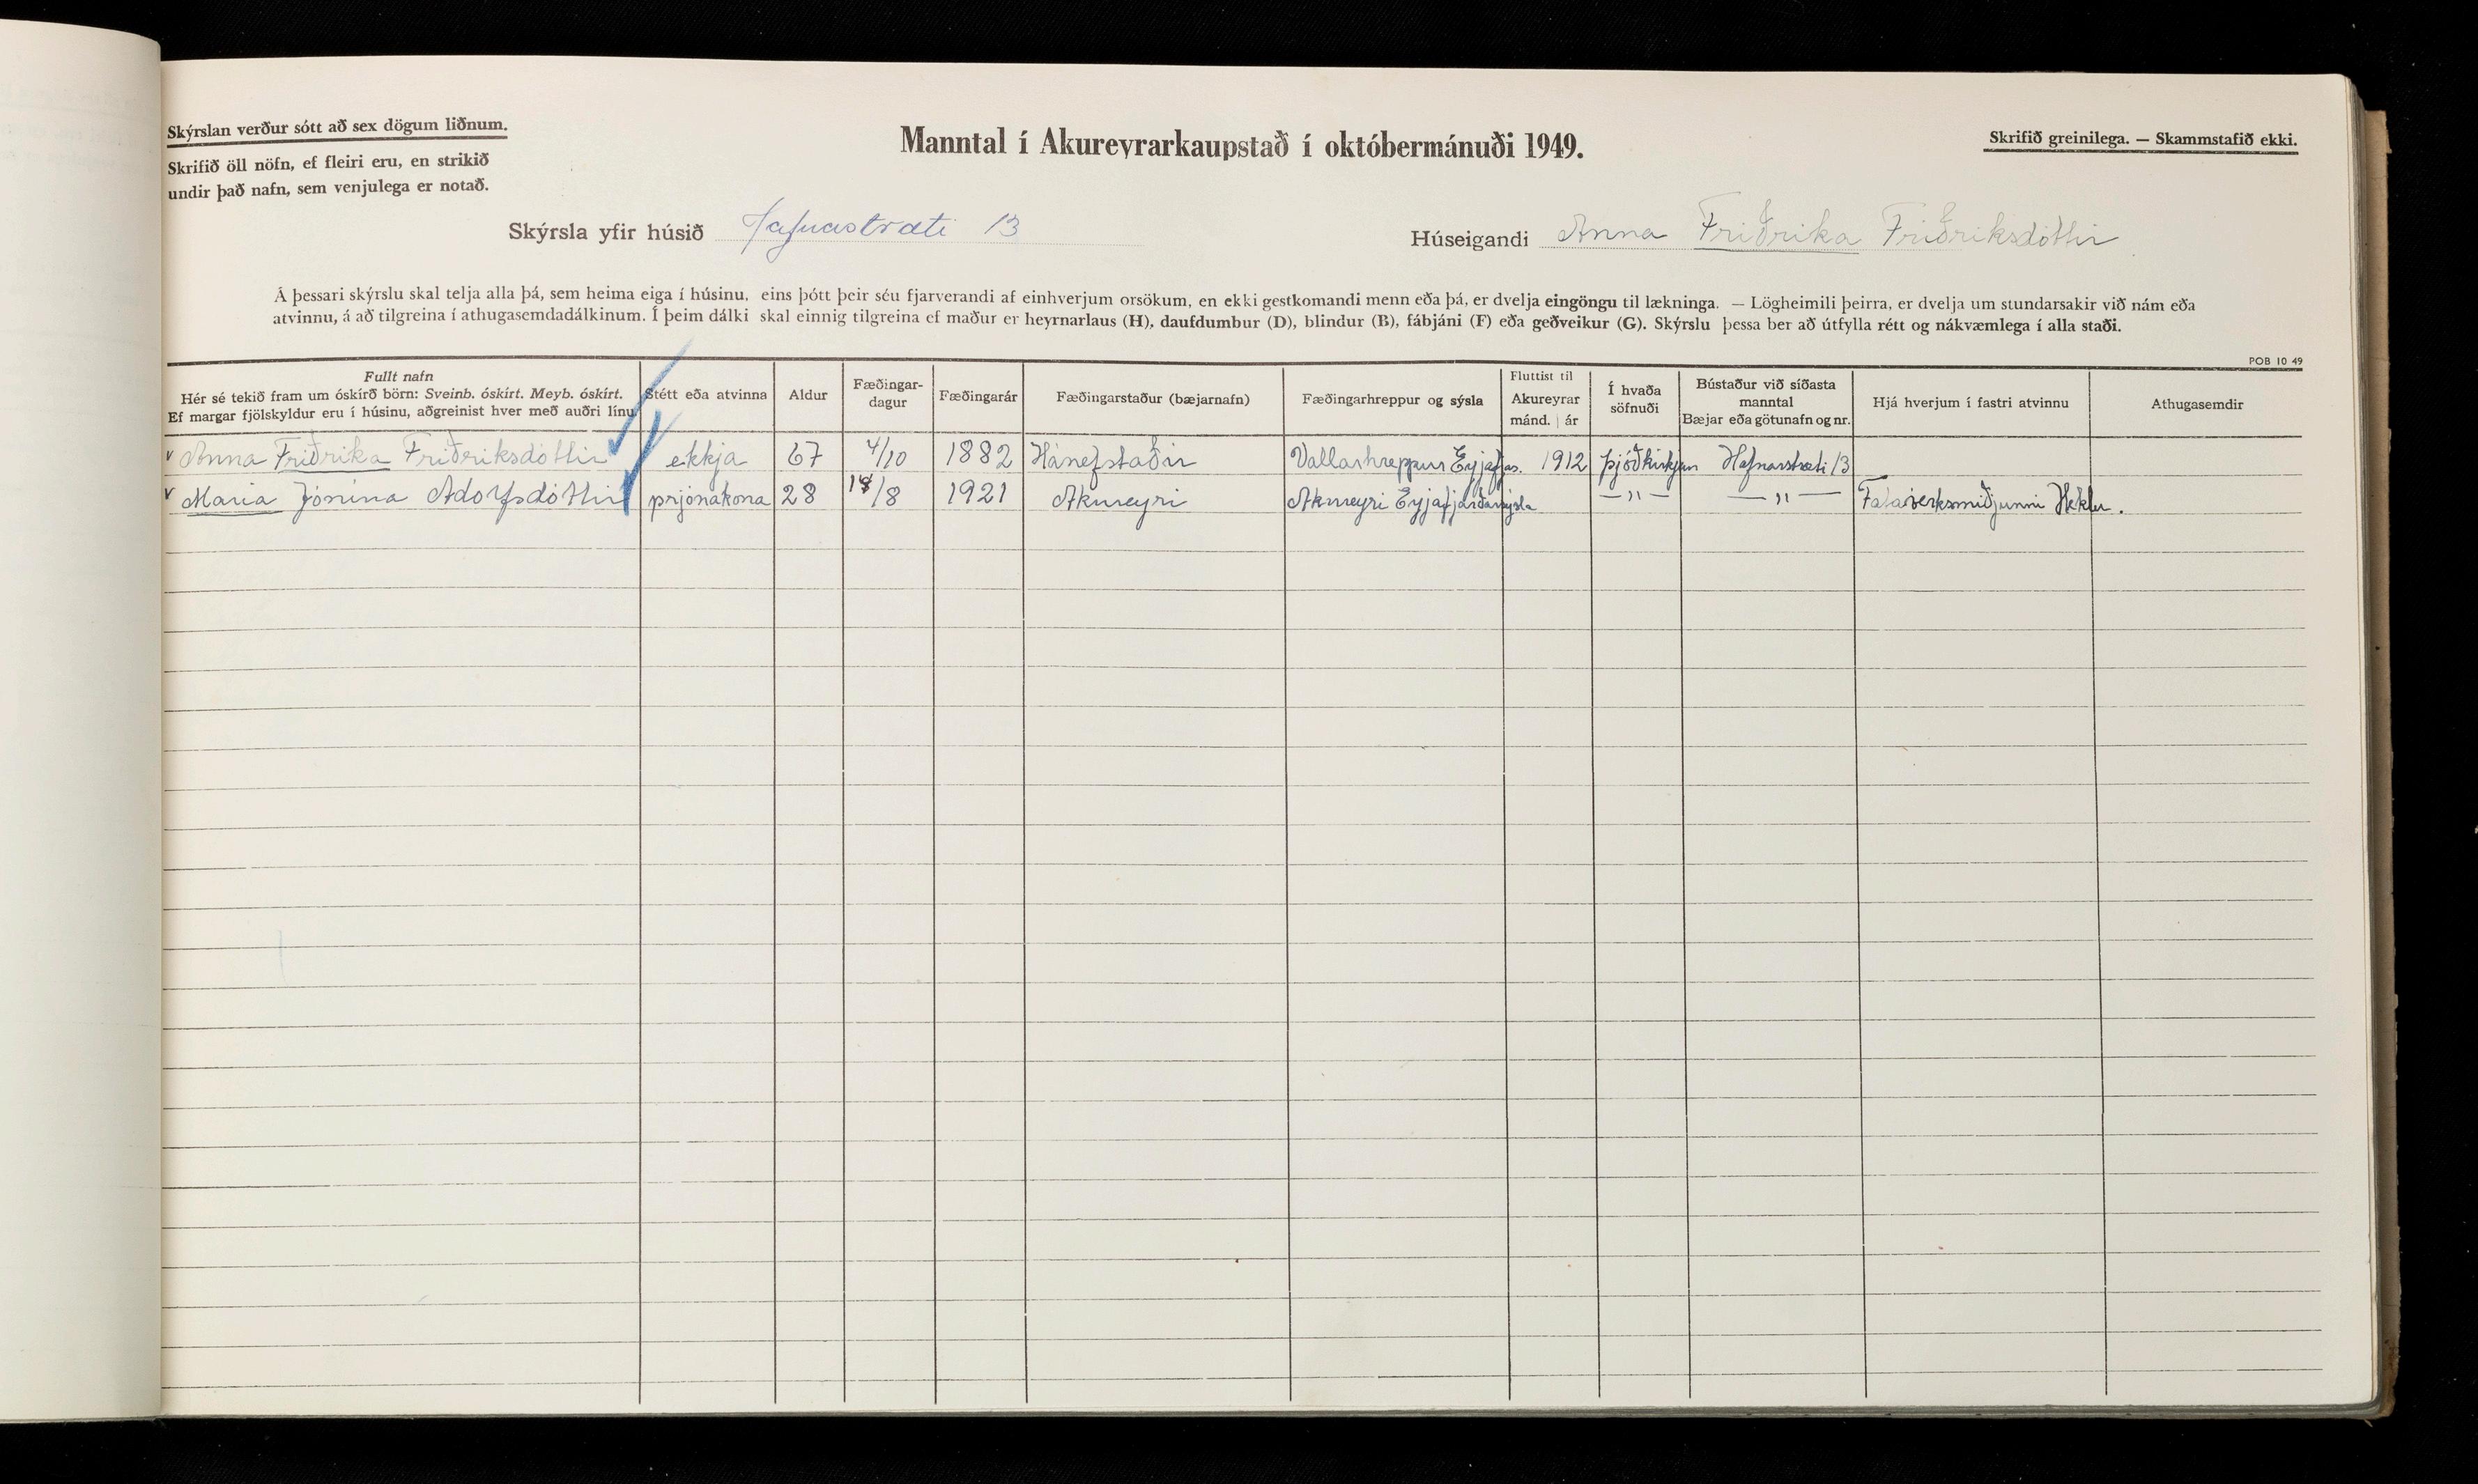 Skýrslan verður sótt að sex dögum liðnum.
Skrifið öll nöfn, ef fleiri eru, en strikið
undir það nafn, sem venjulega er notað.
Manntal í Akureyrarkaupstað í októbermánuði 1949.
Skrifið greinilega. — Skammstafið ekki.
Skýrsla yfir húsið Hafnastræti 13
Húseigandi Anna Friðrika Friðriksdóttir
Á þessari skýrslu skal telja alla þá, sem heima eiga í húsinu, eins þótt þeir séu fjarverandi af einhverjum orsökum, en ekki gestkomandi menn eða þá, er dvelja eingöngu til lækninga. — Lögheimili þeirra, er dvelja um stundarsakir við nám eða
atvinnu, á að tilgreina í athugasemdadálkinum. Í þeim dálki skal einnig tilgreina ef maður er heyrnarlaus (H), daufdumbur (D), blindur (B), fábjáni (F) eða geðveikur (G). Skýrslu þessa ber að útfylla rétt og nákvæmlega í alla staði.
POB 10 49
Fullt nafn
Hér sé tekið fram um óskírð börn: Sveinb. óskírt. Meyb. óskírt.
Ef margar fjölskyldur eru í húsinu, aðgreinist hver með auðri línu
Stétt eða atvinna
Aldur
Fæðingar-
dagur
Fæðingarár
Fæðingarstaður (bæjarnafn)
Fæðingarhreppur og sýsla
Fluttist til
Akureyrar
mánd. | ár
Í hvaða
söfnuði
Bústaður við síðasta
manntal
Bæjar eða götunafn og nr.
Hjá hverjum í fastri atvinnu
Athugasemdir
v Anna Friðrika Friðriksdóttir ekkja 67 4/10 1882 Hánefstaðir Vallarhreppur Eyjafjas. 1912 þjóðkirkjan Hafnarstræti 13
v María Jónína Adolfsdóttir prjónakona 28 /8 1921 Akureyri Akureyri Eyjafjarðarsýsla —"— —"— Fataverksmiðjunni Heklu.